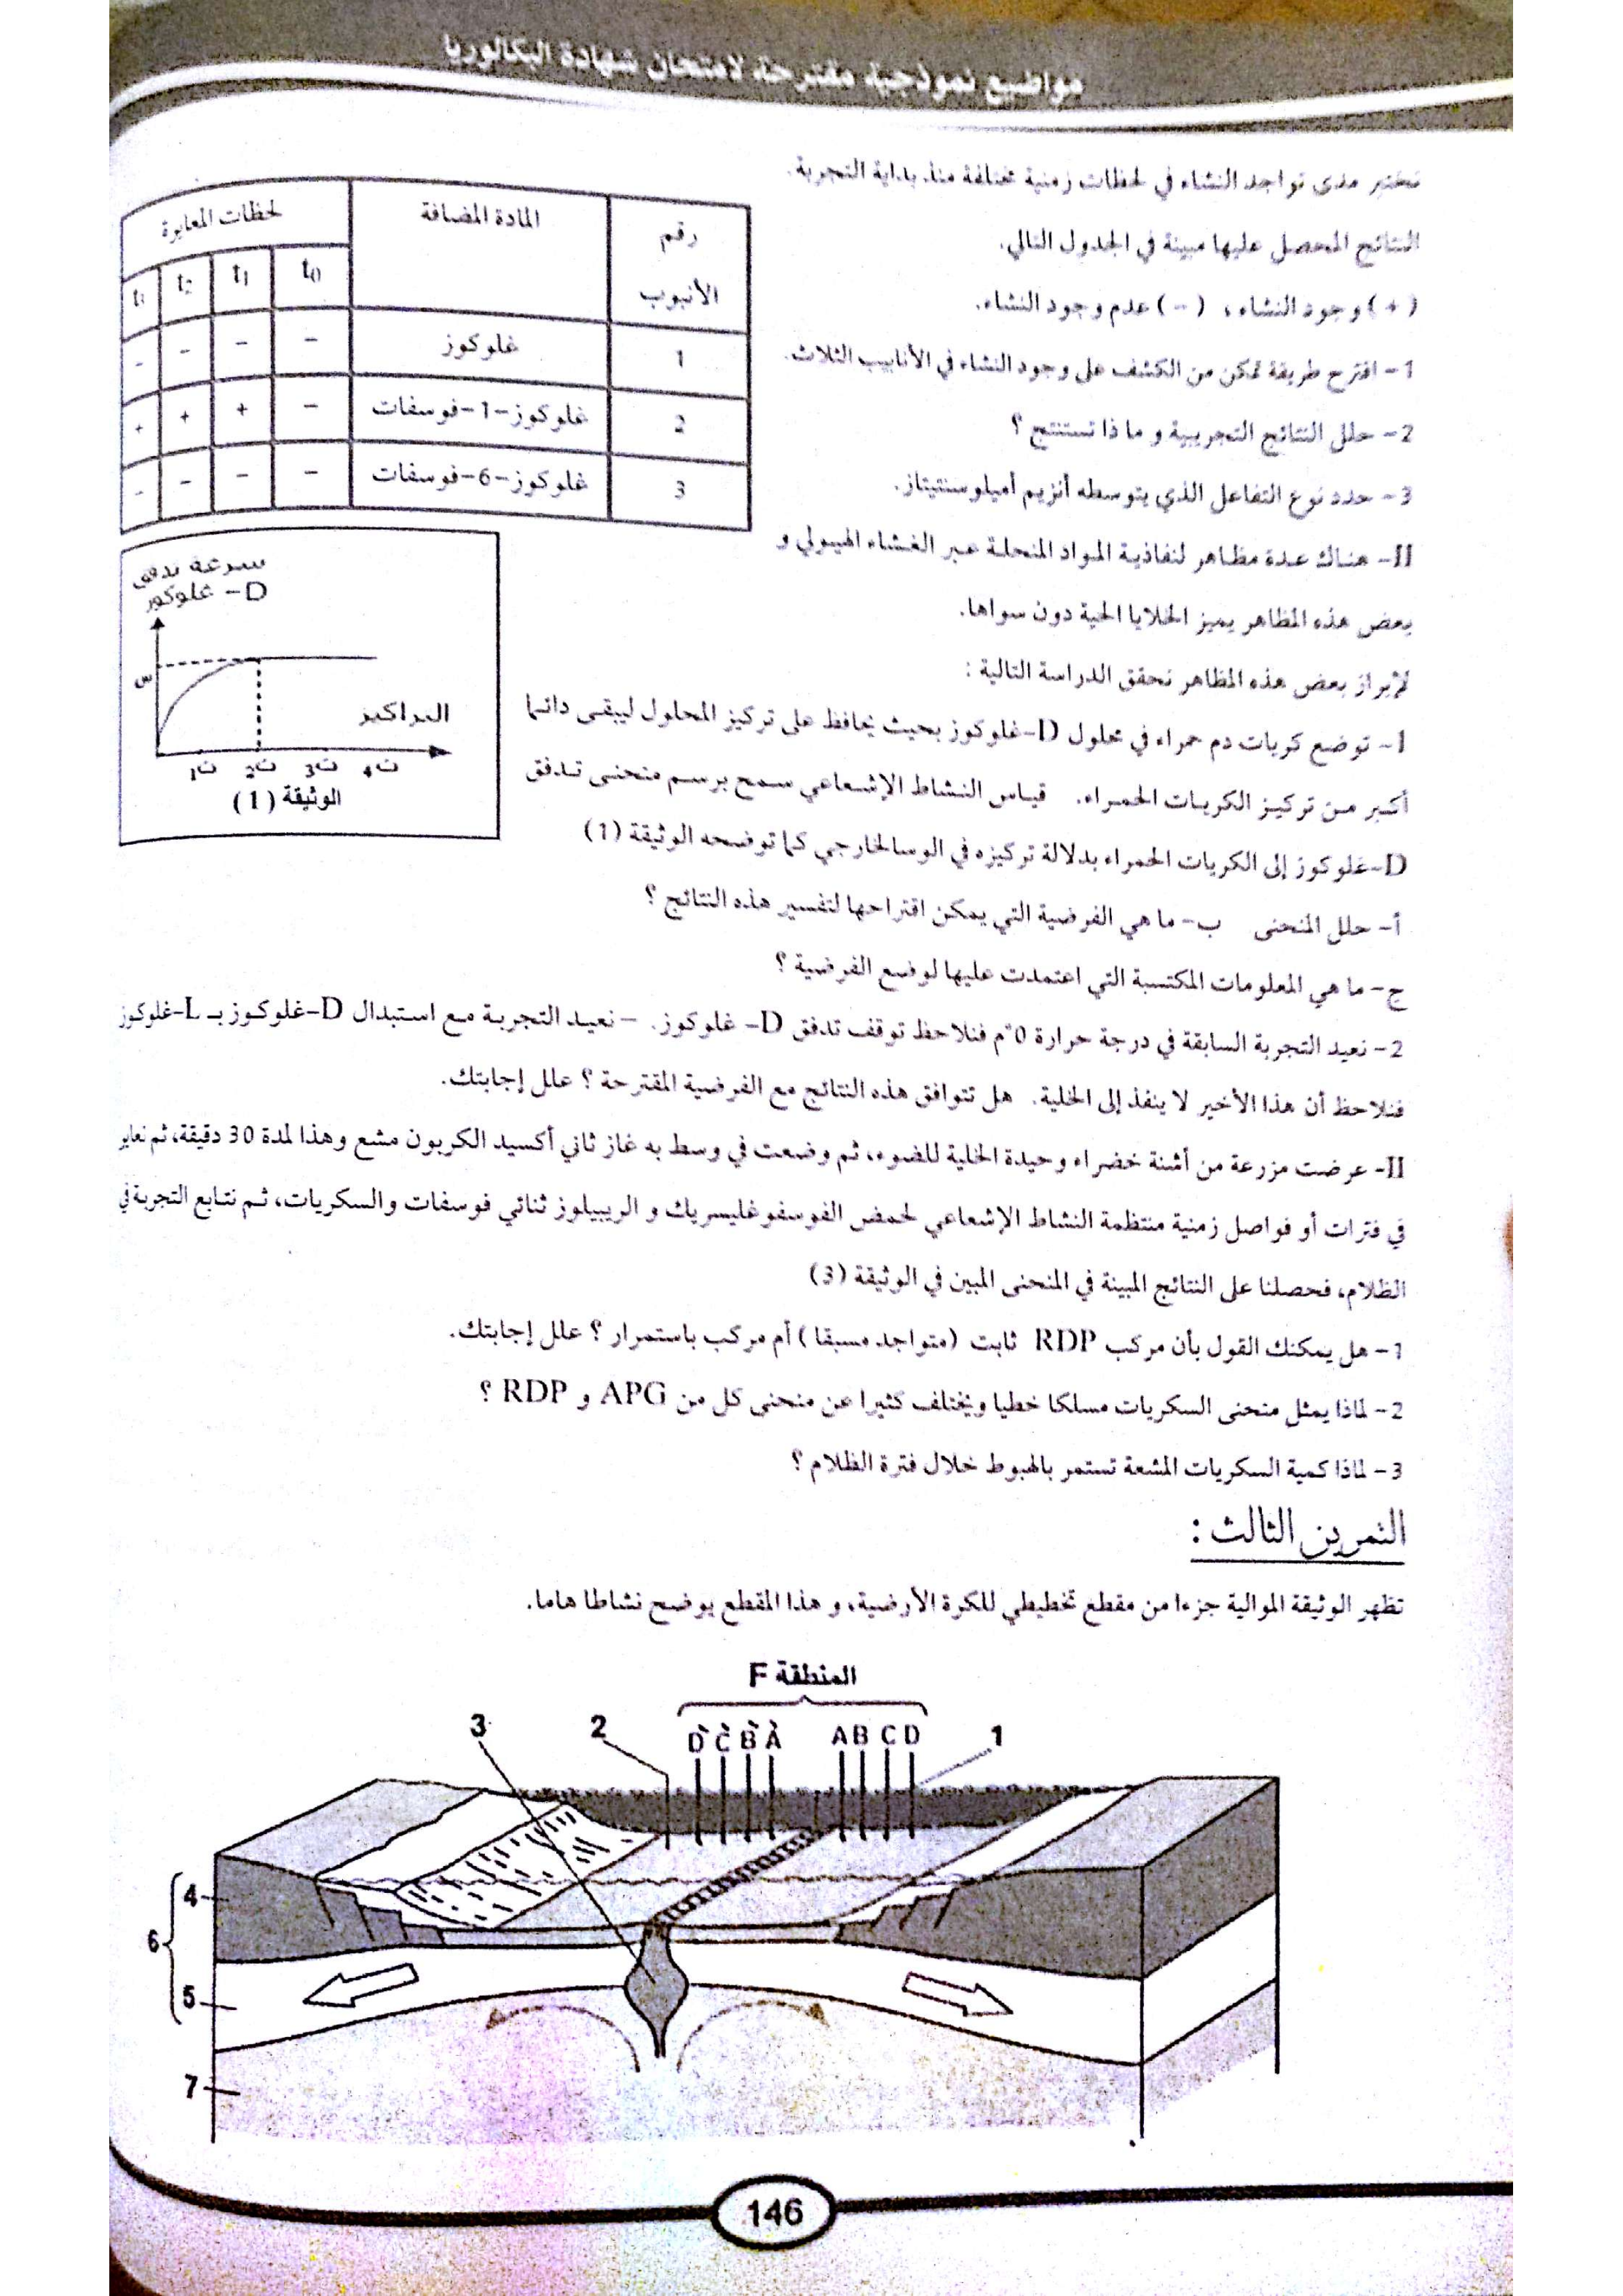 مواضيع نموذجية مقترحة لامتحان شهادة البكالوريا
نختبر مدى تواجد النشاء في لحظات زمنية مختلفة منذ بداية التجربة.
النتائج المحصل عليها مبينة في الجدول التالي.
(+) وجود النشاء ، (-) عدم وجود النشاء.
1- اقترح طريقة تمكن من الكشف على وجود النشاء في الأنابيب الثلاث.
2- حلل النتائج التجريبية و ما ذا تستنتج ؟
3- حدد نوع التفاعل الذي يتوسطه أنزيم أميلوسنتيتاز.
رقم الأنبوب | المادة المضافة | لحظات المعايرة
t0 | t1 | t2 | t3
1 | غلوكوز | - | - | - | -
2 | غلوكوز-1-فوسفات | - | + | + | +
3 | غلوكوز-6-فوسفات | - | - | - | -
II- هناك عدة مظاهر لنفاذية المواد المنحلة عبر الغشاء الهيولي و
بعض هذه المظاهر يميز الخلايا الحية دون سواها.
لإبراز بعض هذه المظاهر نحقق الدراسة التالية :
1- توضع كريات دم حمراء في محلول D-غلوكوز بحيث يحافظ على تركيز المحلول ليبقى دائما
أكبر من تركيز الكريات الحمراء. قياس النشاط الإشعاعي سمح برسم منحنى تدفق
D-غلوكوز إلى الكريات الحمراء بدلالة تركيزه في الوسالخارجي كما توضحه الوثيقة (1)
سرعة تدفق
D- غلوكوز
س
التراكيز
ت1 ت2 ت3 ت4
الوثيقة (1)
أ- حلل المنحنى ب- ما هي الفرضية التي يمكن اقتراحها لتفسير هذه النتائج ؟
ج- ما هي المعلومات المكتسبة التي اعتمدت عليها لوضع الفرضية ؟
2- نعيد التجربة السابقة في درجة حرارة 0°م فنلاحظ توقف تدفق D- غلوكوز. - نعيد التجربة مع استبدال D-غلوكوز بـ L-غلوكوز
فنلاحظ أن هذا الأخير لا ينفذ إلى الخلية. هل تتوافق هذه النتائج مع الفرضية المقترحة ؟ علل إجابتك.
II- عرضت مزرعة من أشنة خضراء وحيدة الخلية للضوء، ثم وضعت في وسط به غاز ثاني أكسيد الكربون مشع وهذا لمدة 30 دقيقة، ثم نعاير
في فترات أو فواصل زمنية منتظمة النشاط الإشعاعي لحمض الفوسفوغليسريك و الريبيلوز ثنائي فوسفات والسكريات، ثم نتابع التجربة في
الظلام، فحصلنا على النتائج المبينة في المنحنى المبين في الوثيقة (3)
1- هل يمكنك القول بأن مركب RDP ثابت (متواجد مسبقا) أم مركب باستمرار ؟ علل إجابتك.
2- لماذا يمثل منحنى السكريات مسلكا خطيا ويختلف كثيرا عن منحنى كل من APG و RDP ؟
3- لماذا كمية السكريات المشعة تستمر بالهبوط خلال فترة الظلام ؟
التمرين الثالث :
تظهر الوثيقة الموالية جزءا من مقطع تخطيطي للكرة الأرضية، و هذا المقطع يوضح نشاطا هاما.
المنطقة F
3 2 D̀ C̀ B̀ À A B C D 1
4
6
5
7
146